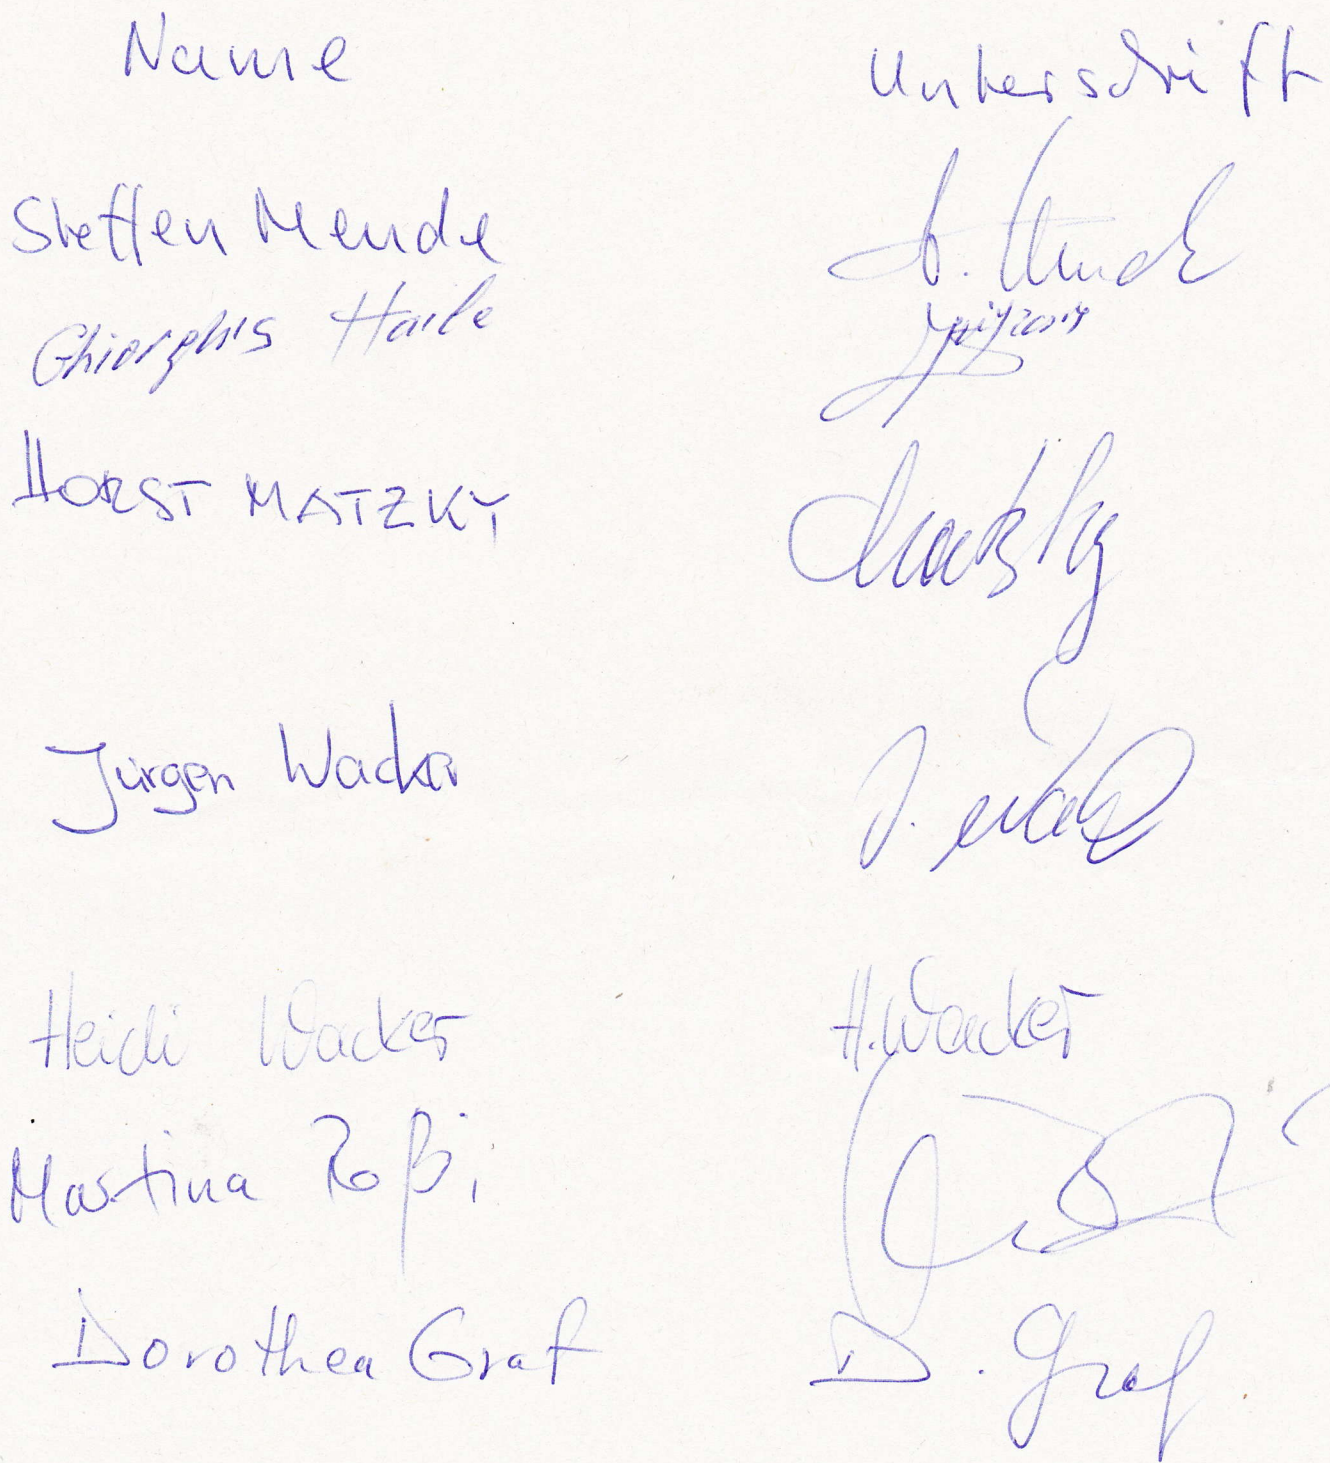 Name Unterschrift
Steffen Mende S. Mende
Ghiorghis Haile
HORST MATZKY Matzky
Jürgen Wacker J.
Heidi Wacker H. Wacker
Martina Roßi
Dorothea Graf D. Graf